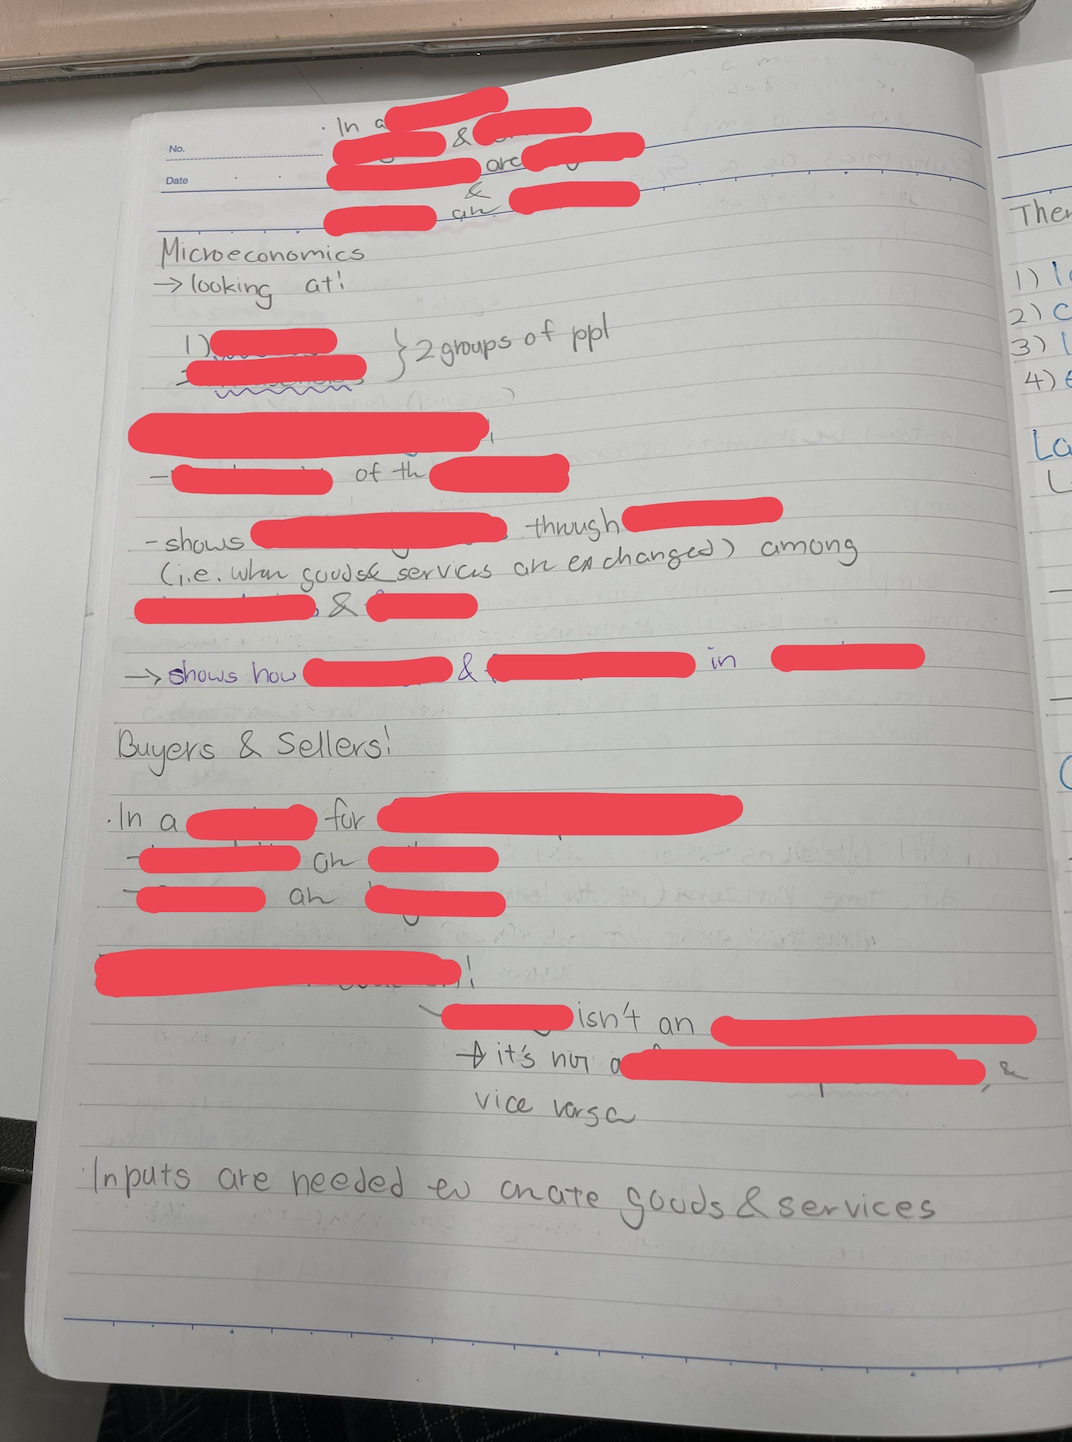 · In a
No. &
are
Date &
an
Microeconomics
→ looking at:
1)
} 2 groups of ppl
- of th
- shows through
(i.e. when goods & services an exchanged) among
&
→ shows how & in
Buyers & Sellers:
· In a for
- an
- an
isn't an
→ it's not a , &
vice versa
· Inputs are needed to create goods & services
Ther
1)
2) C
3)
4)
La